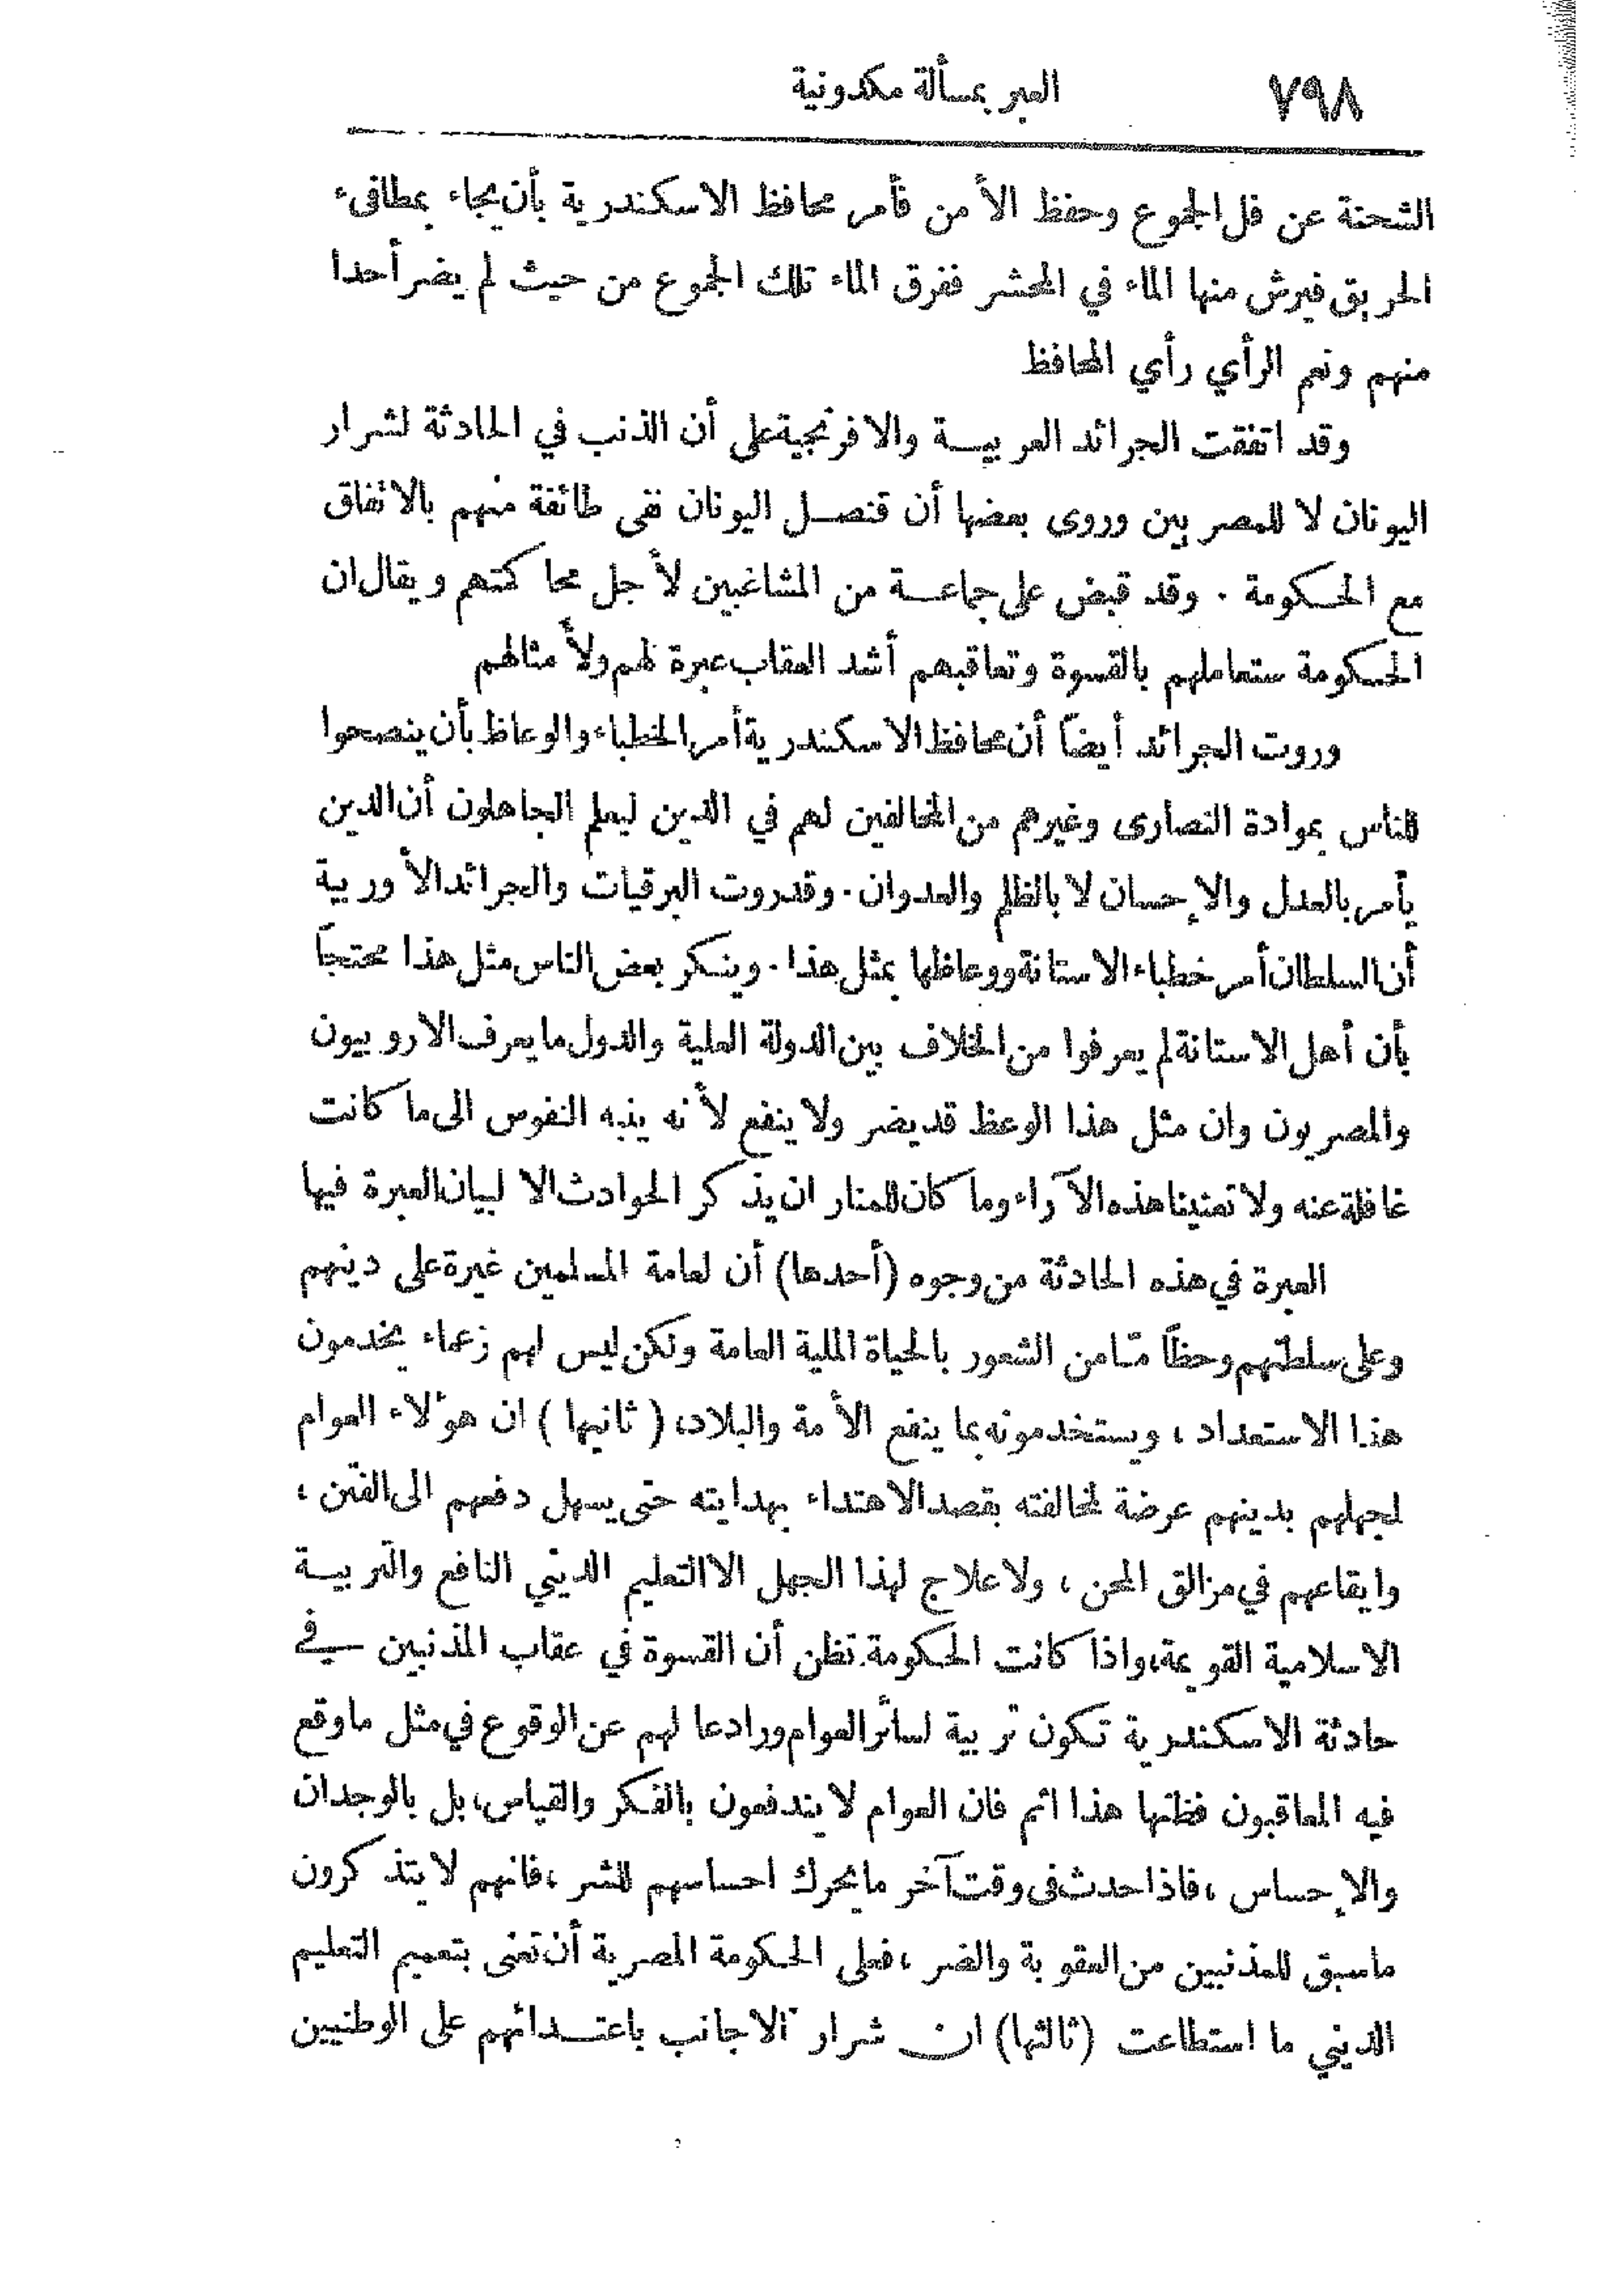 ٧٩٨
العبر بمسألة مكدونية
الشحنة عن فل الجموع وحفظ الأمن فأمر محافظ الاسكندرية بأن يجاء بمطافىء
الحريق فيرش منها الماء في المحشر ففرق الماء تلك الجموع من حيث لم يضر أحدا
منهم ونعم الرأي رأي المحافظ
وقد اتفقت الجرائد العربيـة والافرنجية على أن الذنب في الحادثة لشرار
اليونان لا للمصريين وروى بعضها أن قنصـل اليونان نفى طائفة منهم بالاتفاق
مع الحكومة . وقد قبض على جماعـة من المشاغبين لأجل محاكمتهم ويقال ان
الحكومة ستعاملهم بالقسوة وتعاقبهم أشد العقاب عبرة لهم ولأمثالهم
وروت الجرائد أيضاً أن محافظ الاسكندرية أمر الخطباء والوعاظ بأن ينصحوا
للناس بموادة النصارى وغيرهم من المخالفين لهم في الدين ليعلم الجاهلون أن الدين
يأمر بالعدل والإحسان لا بالظلم والعدوان . وقد روت البرقيات والجرائد الأوربية
أن السلطان أمر خطباء الاستانة ووعاظها بمثل هذا . وينكر بعض الناس مثل هذا محتجاً
بأن أهل الاستانة لم يعرفوا من الخلاف بين الدولة العلية والدول ما يعرف الاروبيون
والمصريون وان مثل هذا الوعظ قد يضر ولا ينفع لأنه ينبه النفوس الى ما كانت
غافلة عنه ولا تعنينا هذه الآراء وما كان للمنار ان يذكر الحوادث الا لبيان العبرة فيها
العبرة في هذه الحادثة من وجوه (أحدها) أن لعامة المسلمين غيرة على دينهم
وعلى سلطتهم وحظاً مّا من الشعور بالحياة الملية العامة ولكن ليس لهم زعماء يخدمون
هذا الاستعداد ، ويستخدمونه بما ينفع الأمة والبلاد، (ثانيها) ان هؤلاء العوام
لجهلهم بدينهم عرضة لمخالفته بقصد الاهتداء بهدايته حتى يسهل دفعهم الى الفتن ،
وايقاعهم في مزالق المحن ، ولا علاج لهذا الجهل الا التعليم الديني النافع والتربيـة
الاسلامية القويمة، واذا كانت الحكومة تظن أن القسوة في عقاب المذنبين في
حادثة الاسكندرية تكون تربية لسائر العوام ورادعا لهم عن الوقوع في مثل ما وقع
فيه المعاقبون فظنها هذا اثم فان العوام لا يندفعون بالفكر والقياس، بل بالوجدان
والإحساس ، فاذا حدث فى وقت آخر ما يحرك احساسهم للشر ، فانهم لا يتذكرون
ما سبق للمذنبين من العقوبة والضر ، فعلى الحكومة المصرية أن تعنى بتعميم التعليم
الديني ما استطاعت (ثالثها) ان شرار الاجانب باعتـدائهم على الوطنيين